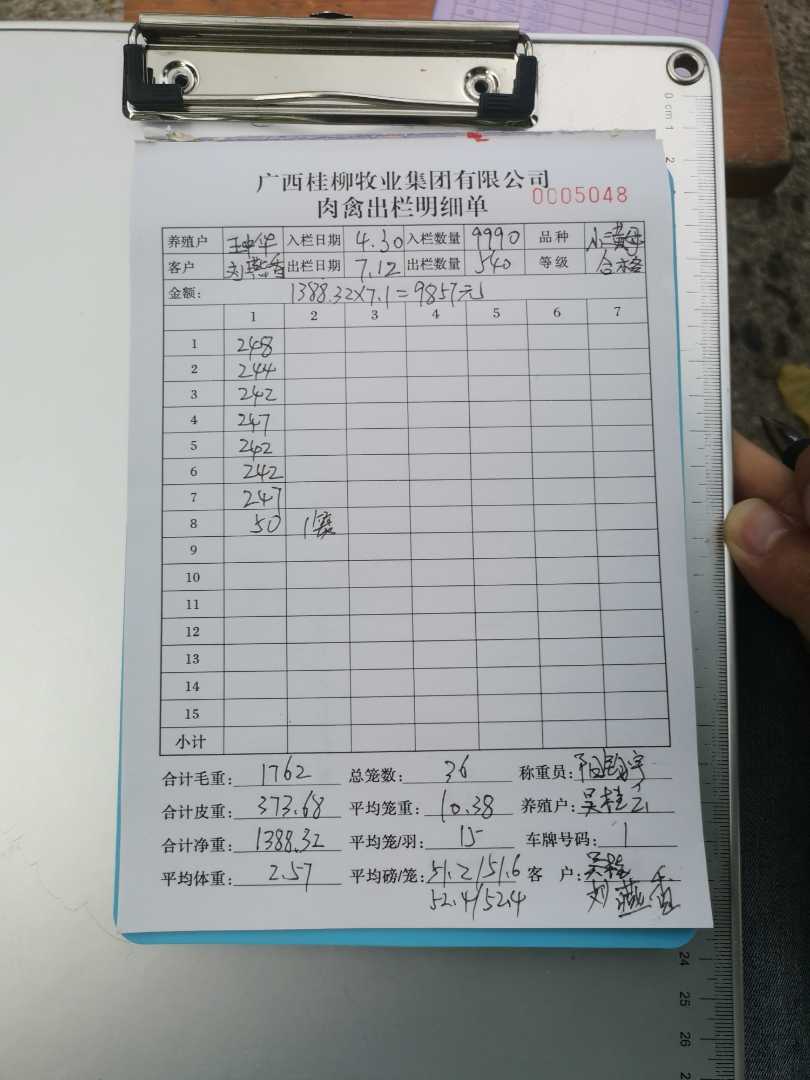 广西桂柳牧业集团有限公司
肉禽出栏明细单 0005048
养殖户 王中华 入栏日期 4.30 入栏数量 9990 品种
客户 刘燕香 出栏日期 7.12 出栏数量 540 等级 合格
金额: 1388.32×7.1=9857元
1 2 3 4 5 6 7
1 248
2 244
3 242
4 247
5 242
6 242
7 247
8 50
9
10
11
12
13
14
15
小计
合计毛重: 1762 总笼数: 36 称重员:
合计皮重: 373.68 平均笼重: 10.38 养殖户:
合计净重: 1388.32 平均笼/羽: 15 车牌号码: 1
平均体重: 2.57 平均磅/笼: 51.2/51.6 客 户:
52.4/52.4 刘燕香
0 cm 1
2
24
25
26